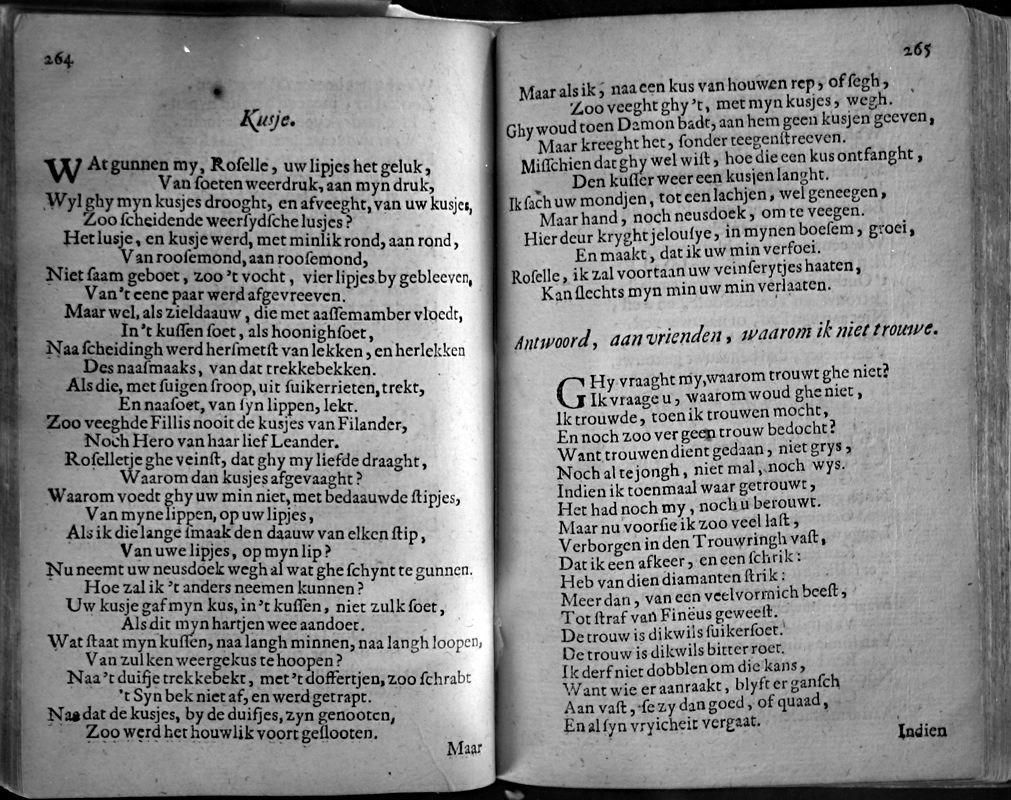 264
Kusje.
WAt gunnen my, Roselle, uw lipjes het geluk,
Van soeten weerdruk, aan myn druk,
Wyl ghy myn kusjes drooght, en afveeght, van uw kusjes,
Zoo scheidende weersydsche lusjes?
Het lusje, en kusje werd, met minlik rond, aan rond,
Van roosemond, aan roosemond,
Niet saam geboet, zoo 't vocht, vier lipjes by gebleeven,
Van 't eene paar werd afgevreeven.
Maar wel, als zieldaauw, die met aassemamber vloedt,
In 't kussen soet, als hoonighsoet,
Naa scheidingh werd hersmetst van lekken, en herlekken
Des naasmaaks, van dat trekkebekken.
Als die, met suigen sroop, uit suikerrieten, trekt,
En naasoet, van syn lippen, lekt.
Zoo veeghde Fillis nooit de kusjes van Filander,
Noch Hero van haar lief Leander.
Roselletje ghe veinst, dat ghy my liefde draaght,
Waarom dan kusjes afgevaaght?
Waarom voedt ghy uw min niet, met bedaauwde stipjes,
Van myne lippen, op uw lipjes,
Als ik die lange smaak den daauw van elken stip,
Van uwe lipjes, op myn lip?
Nu neemt uw neusdoek wegh al wat ghe schynt te gunnen.
Hoe zal ik 't anders neemen kunnen?
Uw kusje gaf myn kus, in 't kussen, niet zulk soet,
Als dit myn hartjen wee aandoet.
Wat staat myn kussen, naa langh minnen, naa langh loopen,
Van zulken weergekus te hoopen?
Naa 't duifje trekkebekt, met 't doffertjen, zoo schrabt
't Syn bek niet af, en werd getrapt.
Naa dat de kusjes, by de duifjes, zyn genooten,
Zoo werd het houwlik voort geslooten.
Maar
265
Maar als ik, naa een kus van houwen rep, of segh,
Zoo veeght ghy 't, met myn kusjes, wegh.
Ghy woud toen Damon badt, aan hem geen kusjen geeven,
Maar kreeght het, sonder teegenstreeven.
Misschien dat ghy wel wist, hoe die een kus ontfanght,
Den kusser weer een kusjen langht.
Ik sach uw mondjen, tot een lachjen, wel geneegen,
Maar hand, noch neusdoek, om te veegen.
Hier deur kryght jelousye, in mynen boesem, groei,
En maakt, dat ik uw min verfoei.
Roselle, ik zal voortaan uw veinserytjes haaten,
Kan slechts myn min uw min verlaaten.
Antwoord, aan vrienden, waarom ik niet trouwe.
GHy vraaght my, waarom trouwt ghe niet?
Ik vraage u, waarom woud ghe niet,
Ik trouwde, toen ik trouwen mocht,
En noch zoo ver geen trouw bedocht?
Want trouwen dient gedaan, niet grys,
Noch al te jongh, niet mal, noch wys.
Indien ik toenmaal waar getrouwt,
Het had noch my, noch u berouwt.
Maar nu voorsie ik zoo veel last,
Verborgen in den Trouwringh vast,
Dat ik een afkeer, en een schrik:
Heb van dien diamanten strik:
Meer dan, van een veelvormich beest,
Tot straf van Finëus geweest.
De trouw is dikwils suikersoet.
De trouw is dikwils bitter roet.
Ik derf niet dobblen om die kans,
Want wie er aanraakt, blyft er gansch
Aan vast, se zy dan goed, of quaad,
En al syn vryicheit vergaat.
Indien